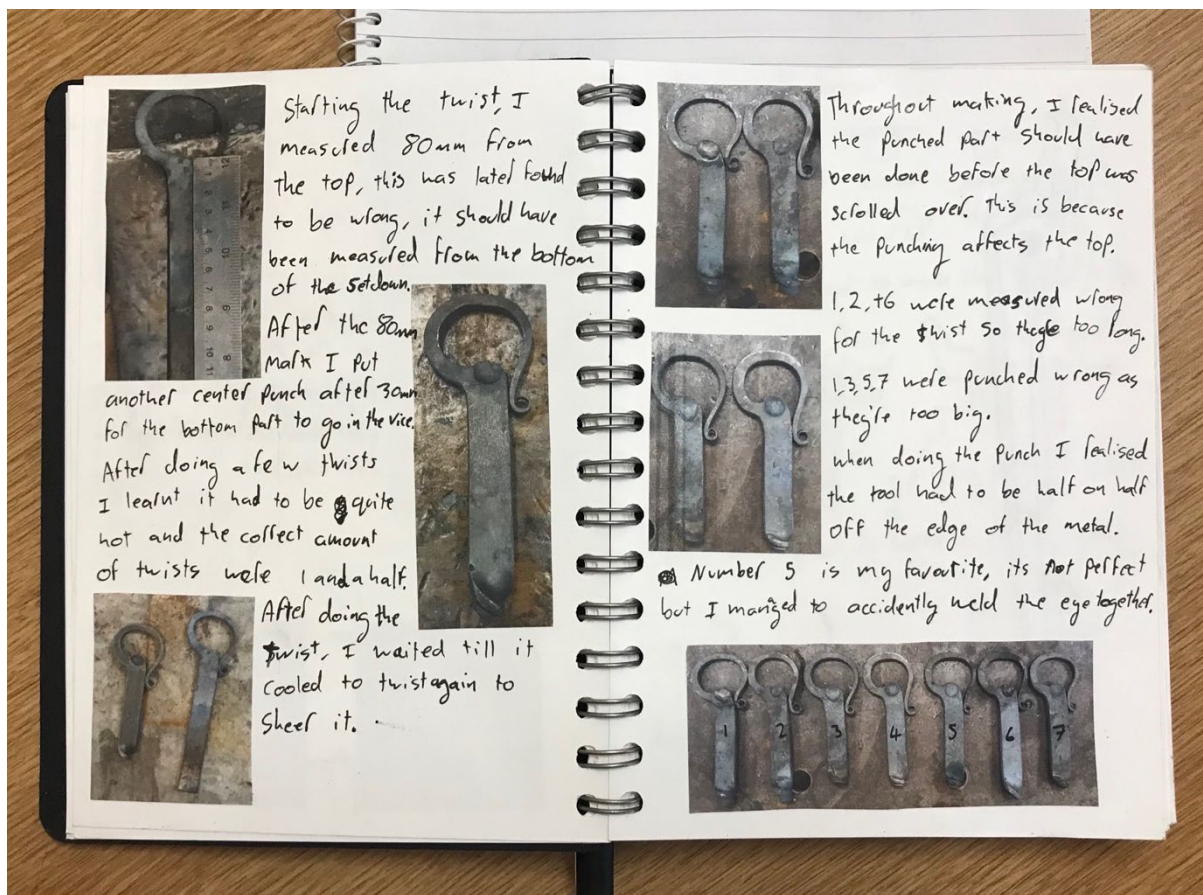 Starting the twist, I
measured 80mm from
the top, this was later found
to be wrong, it should have
been measured from the bottom
of the setdown.
After the 80mm
mark I put
another center punch after 30mm
for the bottom part to go in the vice.
After doing a few twists
I learnt it had to be quite
hot and the correct amount
of twists were 1 and a half.
After doing the
twist, I waited till it
cooled to twist again to
sheer it.
Throughout making, I realised
the punched part should have
been done before the top was
scrolled over. This is because
the punching affects the top.
1, 2, +6 were measured wrong
for the twist so there too long.
1,3,5,7 were punched wrong as
they're too big.
when doing the punch I realised
the tool had to be half on half
off the edge of the metal.
Number 5 is my favourite, its not perfect
but I manged to accidently weld the eye together.
1 2 3 4 5 6 7